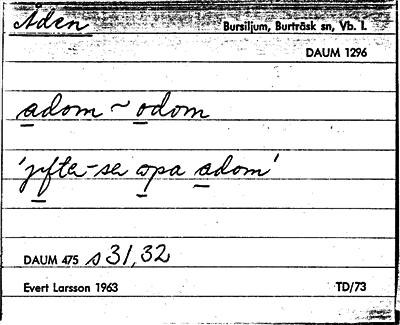 Åden
Bursiljum, Burträsk sn, Vb. l.
DAUM 1296
adom ~ odom
'jifte-se opa adom'
DAUM 475 s 31, 32
Evert Larsson 1963
TD/73